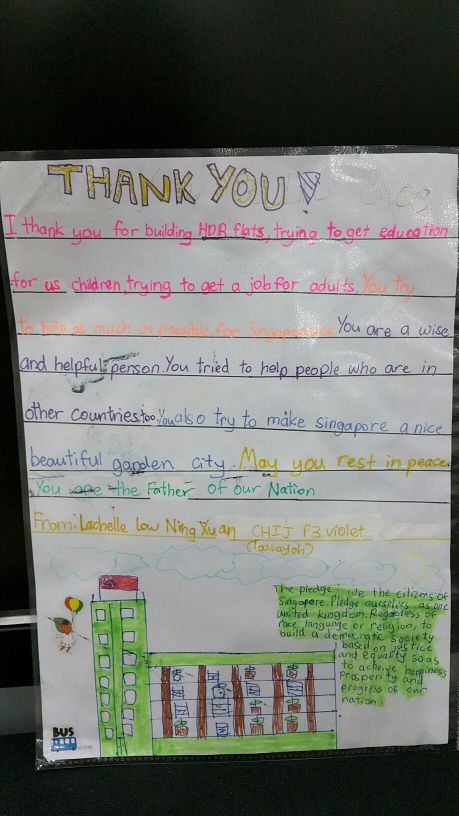 THANK YOU!
I thank you for building HDB flats, trying to get education
for us children, trying to get a job for adults. You try
to help as much as possible for Singaporeans. You are a wise
and helpful person. You tried to help people who are in
other countries too. You also try to make singapore a nice
beautiful garden city. May you rest in peace.
You are the Father of our Nation
From: Lachelle Low Ning Xuan CHIJ P3 violet
(Toa Payoh)
The pledge We the citizens of
Singapore Pledge ourselves as one
united kingdom. Regardless of
race, language or religion, to
build a democratic society
based on justice
and equality so as
to achieve happiness
prosperity and
progress of our
nation
BUS